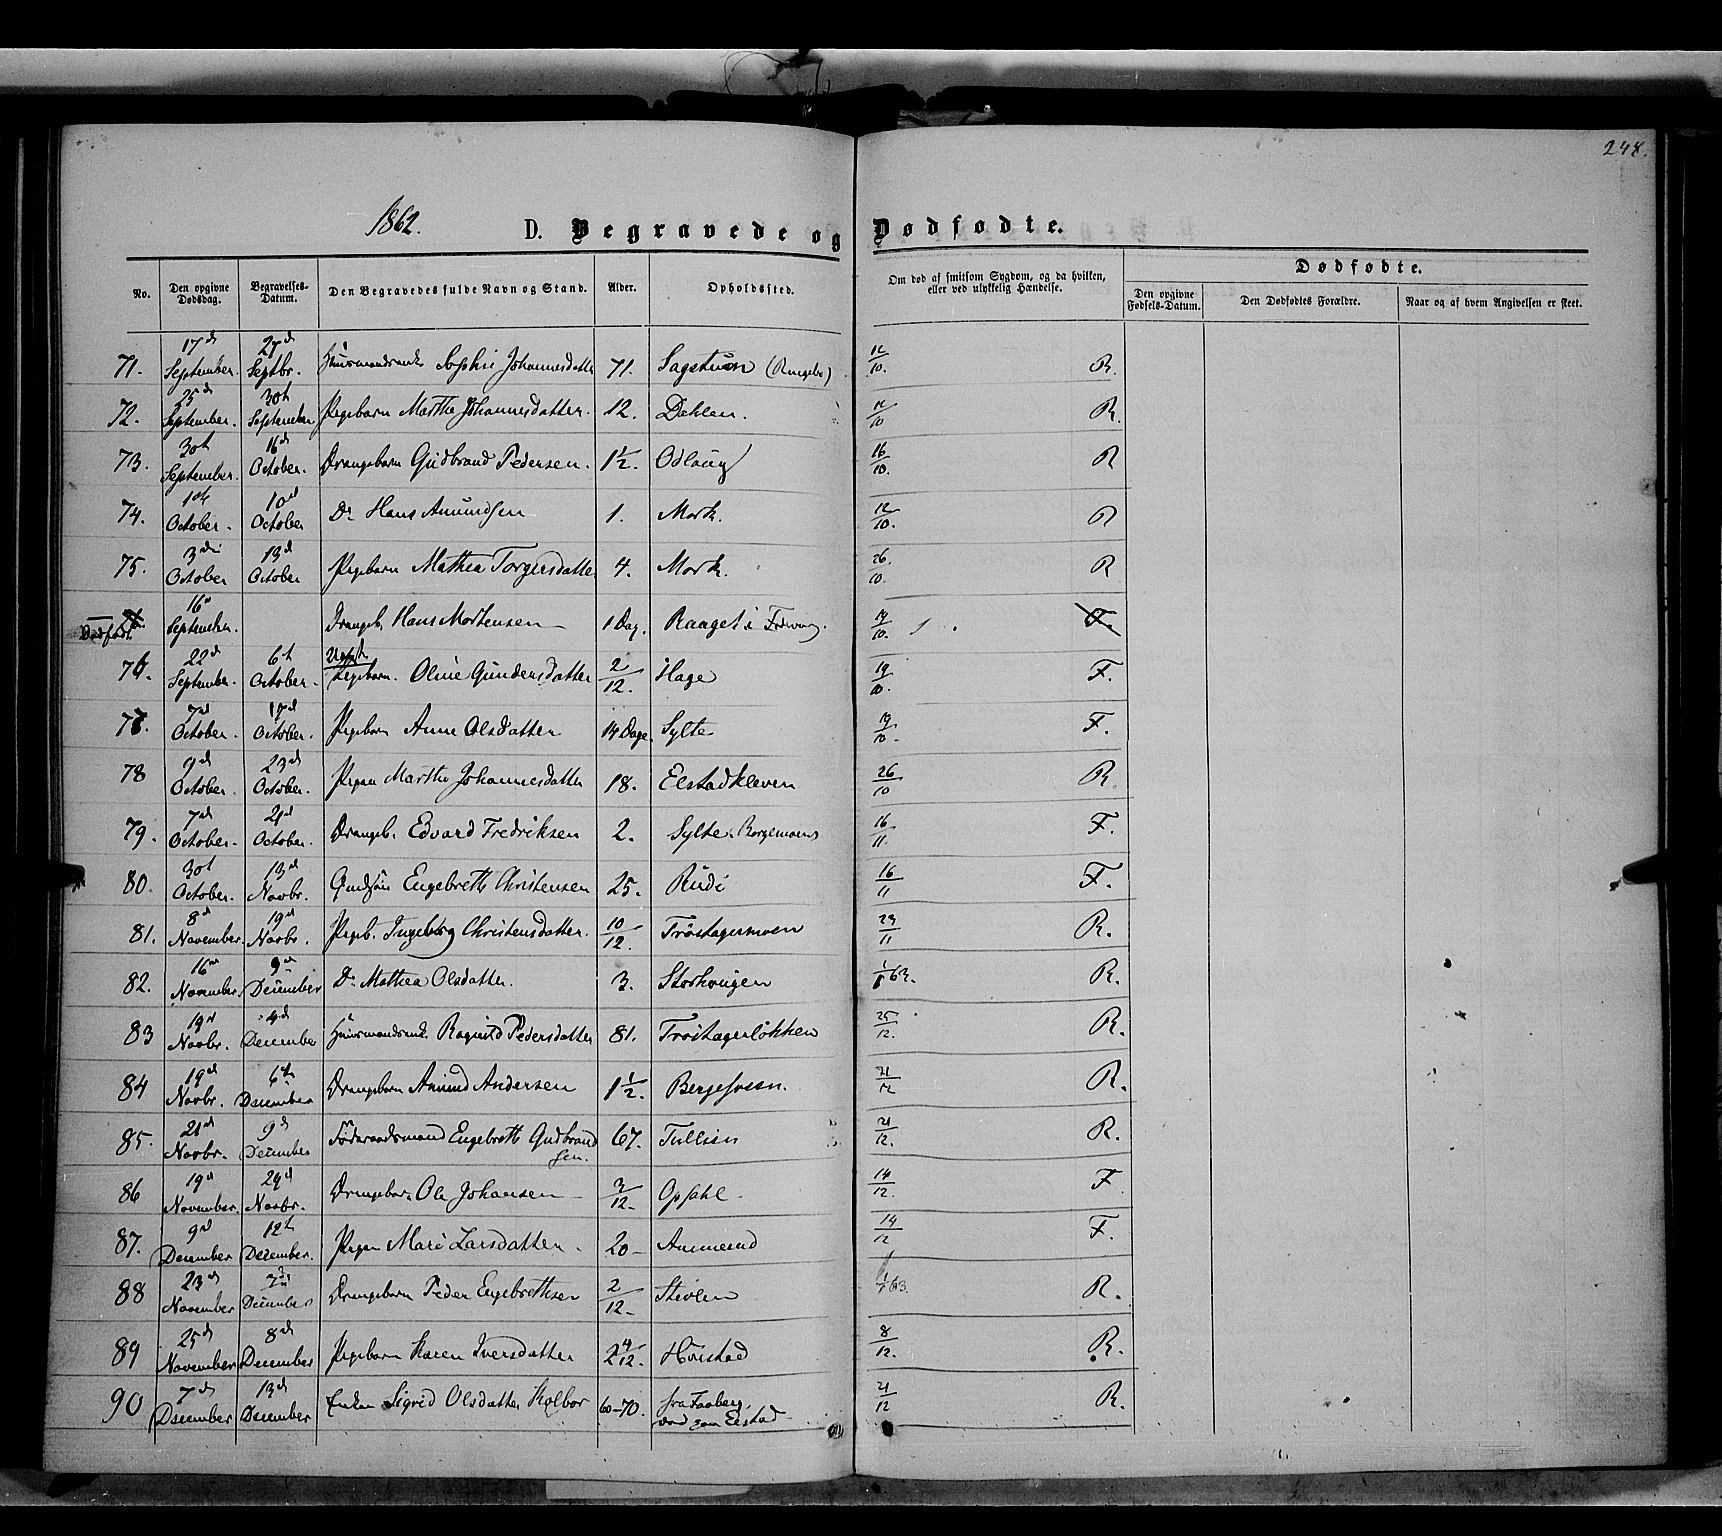 248.
1862.
D. Begravede og Dødfødte.
No. Den opgivne Dødsdag. Begravelses-Datum. Den Begravedes fulde Navn og Stand. Alder. Opholdssted. Om død af smitsom Sygdom, og da hvilken, eller ved ulykkelig Hændelse. Dødfødte.
Den opgivne Fødsels-Datum. Den Dødfødtes Forældre. Naar og af hvem Angivelsen er skeet.
71. 17d September. 27d Septbr. Huusmandsenk Sophie Johannesdatter 71. Sagstuen (Ringebo) 12/10. R.
72. 25d September. 30t September Pigebarn Marthe Johannesdatter. 12. Dahlen. 12/10 R.
73. 30t September. 16d October. Drengebarn Gudbrand Pedersen. 1½. Odlaug 16/10. R
74. 1ste October. 10d October Do Hans Amundsen 1. Mork. 12/10. R
75. 3die October 13d October Pigebarn Mathea Torgersdatter 4. Mork. 26/10. R
Dødfødt 16d September. Drengeb. Hans Mortensen 1 Dag. 19/10. F.
76. 22d September. 6t October. Uægt Pigebarn. Oline Gundersdatter 2/12. Hage 19/10. F.
77. 7d October. 17d October. Pigebarn Anne Olsdatter 14 Dage. Sylte 19/10 F.
78 9d October. 23d October. Pigen Marthe Johannesdatter 18. Elstadkleven 26/10 R
79. 7d October. 21d October. Drengeb. Edvard Fredriksen 2. Sylte. Borgemoens 16/11. F.
80. 30t October. 13d Novbr. Engebreth Christensen 25. Rudi 16/11 F.
81. 8d November. 19d Novbr. Pigeb. Ingeborg Christensdatter. 10/12. Trøstagermoen 23/11 R.
82. 16d November. 9d December Do Mathea Olsdatter. 3. Storhougen 1/1 63. R.
83 19d Novbr. 4d December Huusmandsenk. Ragnild Pedersdatter 81. Trøstagerløkken 25/12. R.
84 19d Novbr. 6te December Drengebarn Amund Andersen 1½. 21/12 R.
85. 21d Novbr. 9d December Føderaadsmand Engebreth Gudbrandsen. 67. Tullien 21/12. R.
86 19d November. 29d Novbr. Drengebar. Ole Johansen 3/12. Opsahl 14/12. F
87. 9d December 12te December. Pigen Mari Larsdatter. 20 Ammerud 14/12 F.
88 23d November 7d December Drengebarn Peder Engebrethsen 2/12. Stevlen 1/1 63. R.
89 25d November 8d December Pigebarn Karen Iversdatter 2 4/12. Harstad 8/12. R.
90 7d December 13d December Enken Sigrid Olsdatter Kolbor 60–70. fra Faaberg, død paa Elstad 21/12 R.